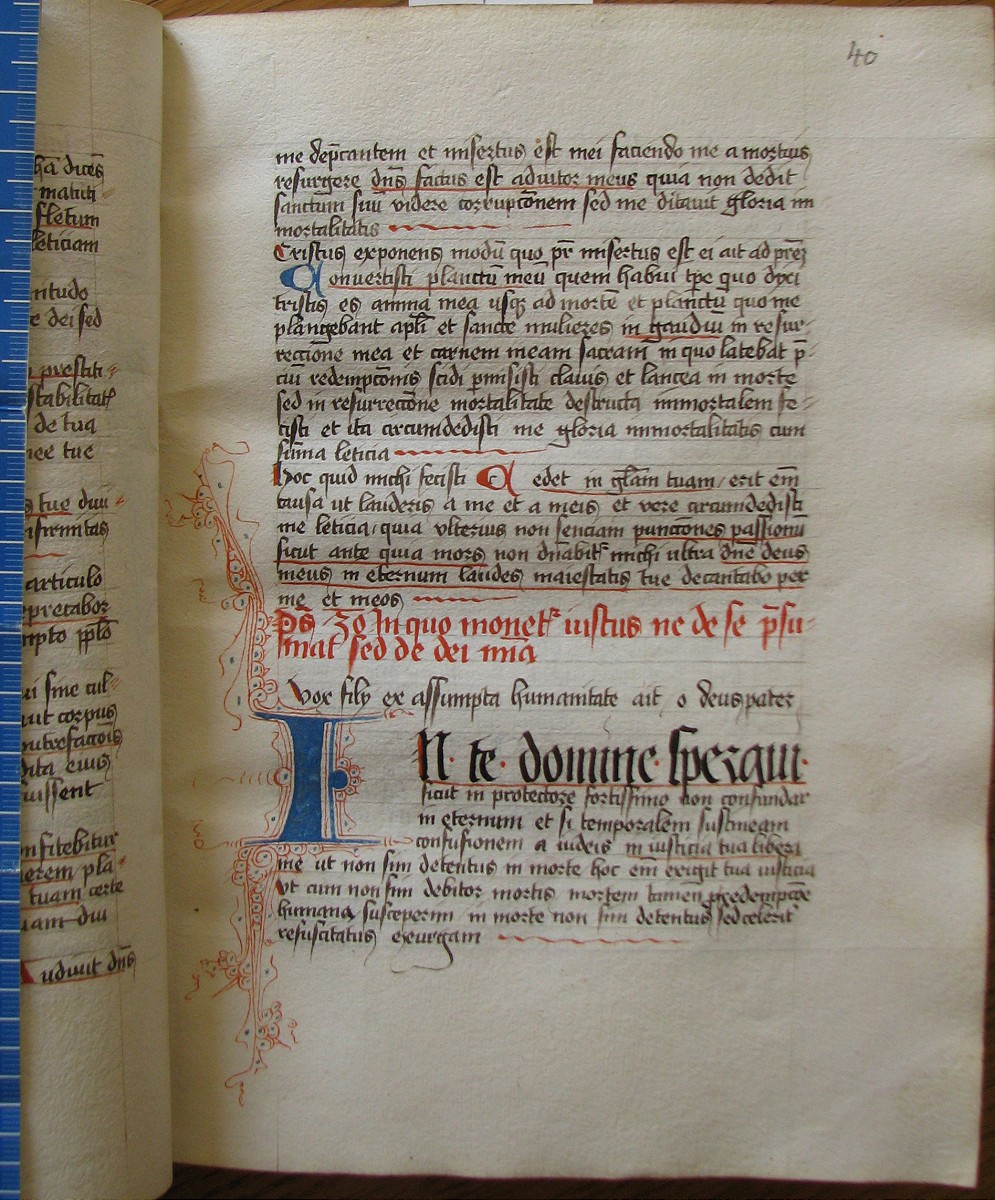 40
hā dicēs
matuti
fletum
leticiam
ritudo
e dei sed
prestiti
stabilitatē
de tua
nee tue
s tue diu
firmitas
articulo
pretabor
mpto pplō
ui sine cul
uit corpus
dita eius
uissent
nfitebitur
tuam certe
uam diu
Audiuit dn̄s
me dep̄cantem et misertus est mei faciendo me a mortuis
resurgere dn̄s factus est adiutor meus quia non dedit
sanctum suū videre corrupcōnem sed me ditauit gloria im
mortalitatis
Cristus exponens modū quo pr̄ misertus est ei ait ad prēz
Conuertisti planctū meū quem habui tp̄e quo dixi
tristis es anima mea usqꝫ ad mortē et planctū quo me
plangebant apl̄i et sancte mulieres in gaudiū in resur
reccione mea et carnem meam sacram in quo latebat p̄
ciū redempcōnis scidi pmisisti clauis et lancea in morte
sed in resurreccōne mortalitate destructa immortalem fe
cisti et ita circumdedisti me gloria immortalitatis cum
sūma leticia
hoc quid michi fecisti Cedet in glām tuam / erit em̄
causa ut lauderis a me et a meis et vere circumdedisti
me leticia / quia vlterius non senciam puncciones passionū
sicut ante quia mors non dn̄abit᷑ michi ultra dn̄e deus
meus in eternum laudes maiestatis tue decantabo per
me et meos
ps̄ 30 In quo monet᷑ iustus ne de se p̄su
mat sed de dei mīa
Vox filij ex assumpta humanitate ait o deus pater
IN te domine speraui
sicut in protectore fortissimo non confundar
in eternum et si temporalem sustineam
confusionem a iudeis in iusticia tua libera
me ut non sim detentus in morte hoc em̄ exigit tua iusticia
vt cum non sim debitor mortis mortem tamen p redempcōe
humana susceperim in morte non sim detentus sed celerit᷑
resuscitatus exurgam